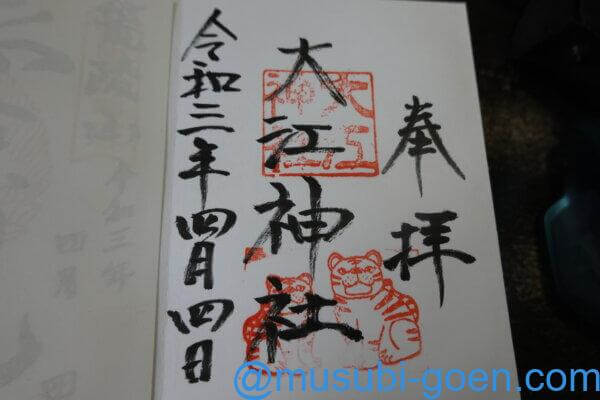 奉拝
大江神社
大江神社
令和三年四月四日
@musubi-goen.com